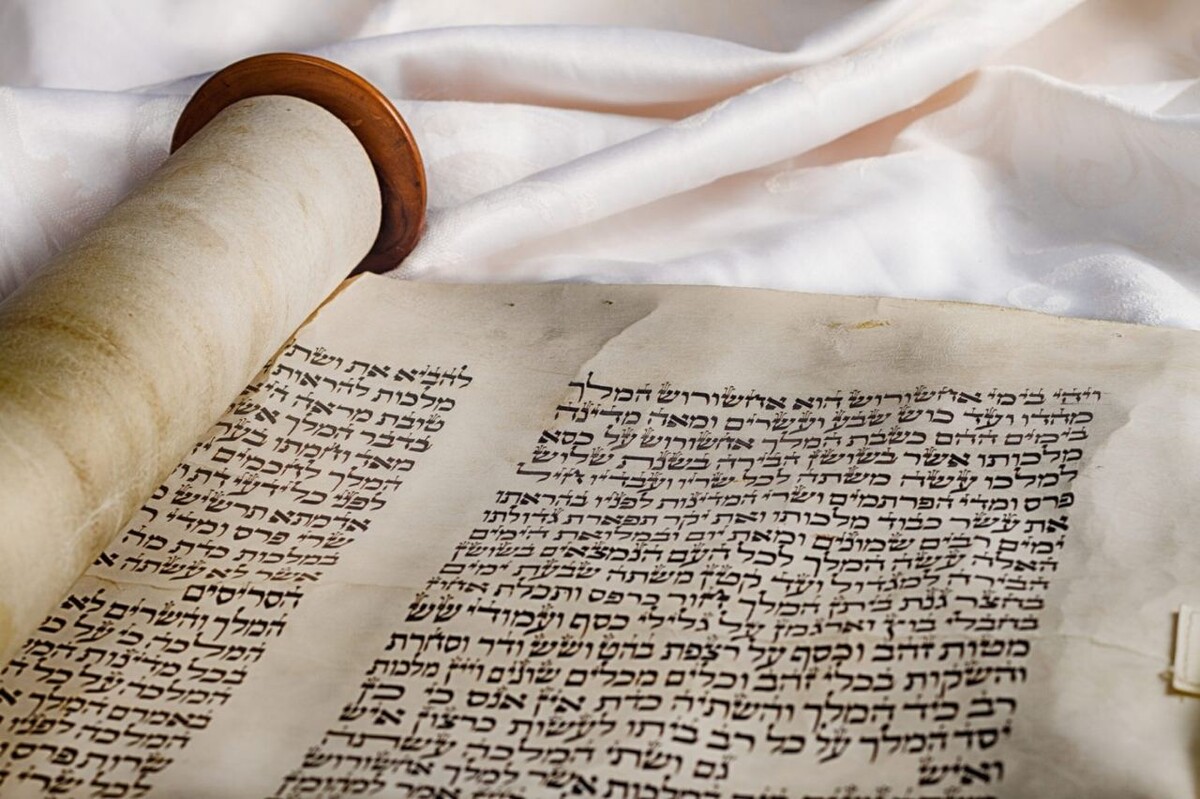 ויהי בימי אחשורוש הוא אחשורוש המלך
מהדו ועד כוש שבע ועשרים ומאה מדינה
בימים ההם כשבת המלך אחשורוש על כסא
מלכותו אשר בשושן הבירה בשנת שלוש
למלכו עשה משתה לכל שריו ועבדיו חיל
פרס ומדי הפרתמים ושרי המדינות לפניו בהראתו
את עשר כבוד מלכותו ואת יקר תפארת גדולתו
ימים רבים שמונים ומאת יום ובמלואת הימים
האלה עשה המלך לכל העם הנמצאים בשושן
הבירה למגדול ועד קטן משתה שבעת ימים
בחצר גנת ביתן המלך חור כרפס ותכלת אחוז
בחבלי בוץ וארגמן על גלילי כסף ועמודי שש
מטות זהב וכסף על רצפת בהט ושש ודר וסחרת
והשקות בכלי זהב וכלים מכלים שונים ויין מלכות
רב כיד המלך והשתיה כדת אין אנס כי כן
יסד המלך על כל רב ביתו לעשות כרצון איש
ואיש גם ושתי המלכה עשתה
המלכות אשר למלך אחשורוש
להביא את ושת
מלכות להראות
טובת מראה
בדבר המלך אשר
מאד וחמתו בער
המלך לחכמים
לפני כל ידעי דת
אדמתא תרשיש
שרי פרס ומדי
במלכות כדת מה
אשר לא עשתה
הסריסים
המלך והשרים לא
המלכה כי על
בכל מדינות
המלכה על כל
באמרם המלך
המלכה לפניו
שרות פרס
לכל שרי